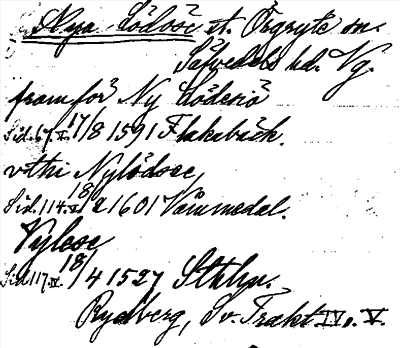 Nya Lödöse st. Örgryte sn.
Sävedals hd. Vg.
framför Ny Lödesiö
Sid. 67. V. 17/8 1591 Flakabäck.
vthi Nylödose,
Sid. 114. V. 18/2 1601 Vämmedal.
Nylose
Sid. 117. IV. 18/4 1527 Sthlm.
Rydberg, Sv. Trakt. IV o. V.